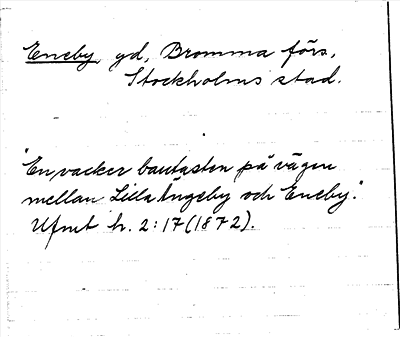 Eneby, gd, Bromma förs,
Stockholms stad.
"En vacker bautasten på vägen
mellan Lilla Ängeby och Eneby."
Ufmt h. 2:17 (1872).